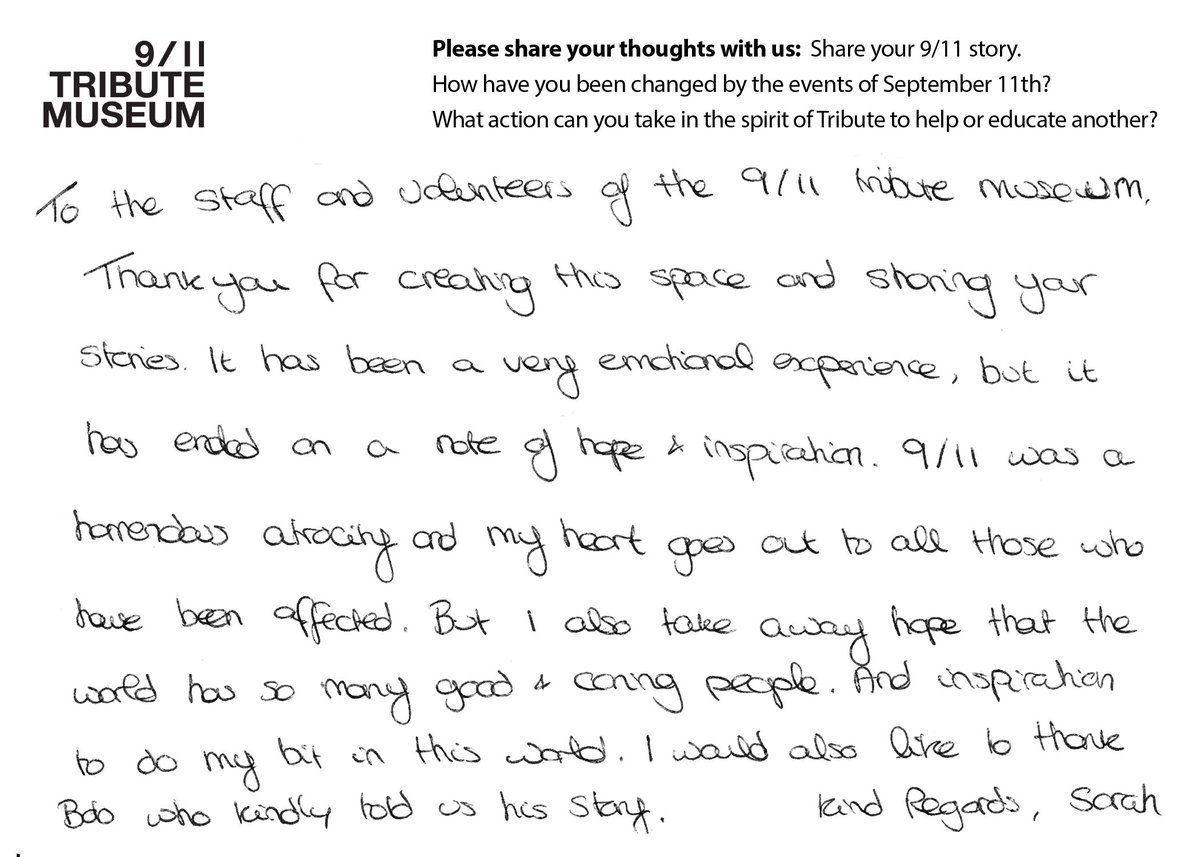 9/11
TRIBUTE
MUSEUM
Please share your thoughts with us: Share your 9/11 story.
How have you been changed by the events of September 11th?
What action can you take in the spirit of Tribute to help or educate another?
To the staff and volunteers of the 9/11 tribute museum,
Thank you for creating this space and sharing your
stories. It has been a very emotional experience, but it
has ended on a note of hope & inspiration. 9/11 was a
horrendous atrocity and my heart goes out to all those who
have been affected. But I also take away hope that the
world has so many good & caring people. And inspiration
to do my bit in this world. I would also like to thank
Bob who kindly told us his story.
Kind Regards, Sarah